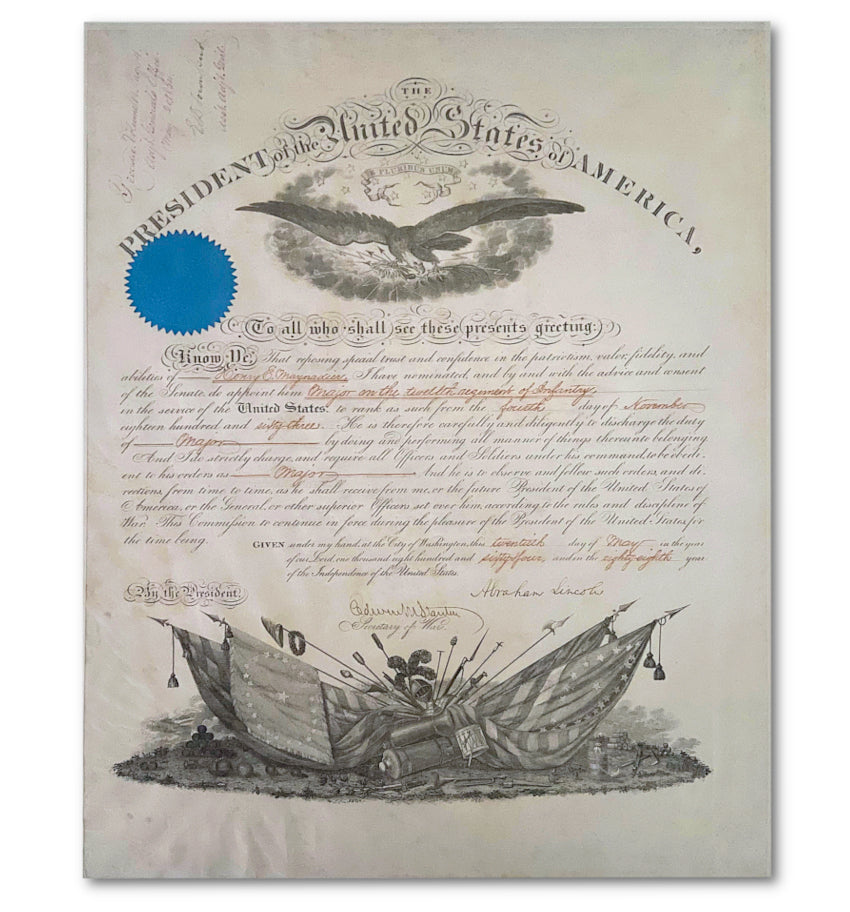 THE
PRESIDENT of the United States of AMERICA,
E PLURIBUS UNUM
To all who shall see these presents greeting:
Know Ye, That reposing special trust and confidence in the patriotism, valor, fidelity, and
abilities of Henry E. Maynadier, I have nominated, and by and with the advice and consent
of the Senate, do appoint him Major in the twelfth regiment of Infantry,
in the service of the United States: to rank as such from the fourth day of November
eighteen hundred and sixty three. He is therefore carefully and diligently to discharge the duty
of Major by doing and performing all manner of things thereunto belonging
And I do strictly charge, and require all Officers and Soldiers under his command, to be obedi-
ent to his orders as Major And he is to observe and follow such orders, and di-
rections, from time to time, as he shall receive from me, or the future President of the United States of
America, or the General, or other superior Officers set over him, according to the rules and discipline of
War. This Commission to continue in force during the pleasure of the President of the United States, for
the time being.
GIVEN under my hand, at the City of Washington, this twentieth day of May in the year
of our Lord, one thousand eight hundred and sixty four, and in the eighty eighth year
of the Independence of the United States.
By the President
Abraham Lincoln
Edwin M Stanton
Secretary of War.